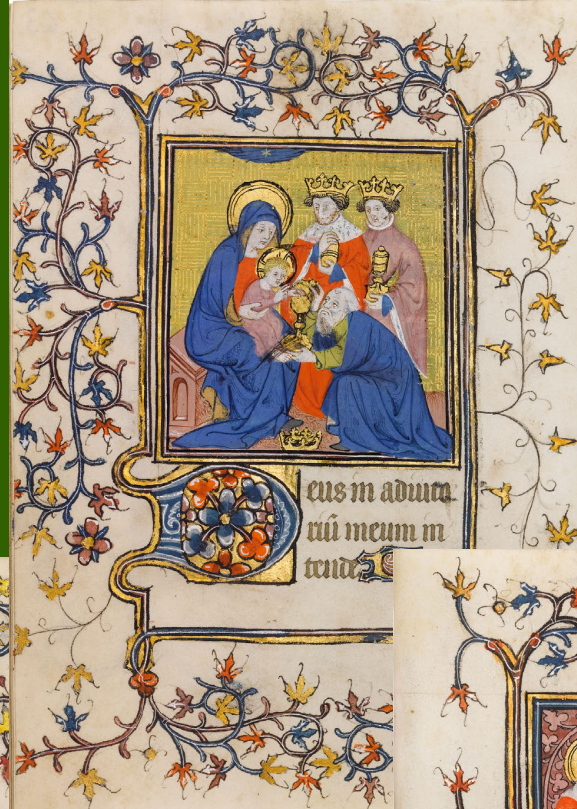 Deus in adiuto
riũ meum in
tende